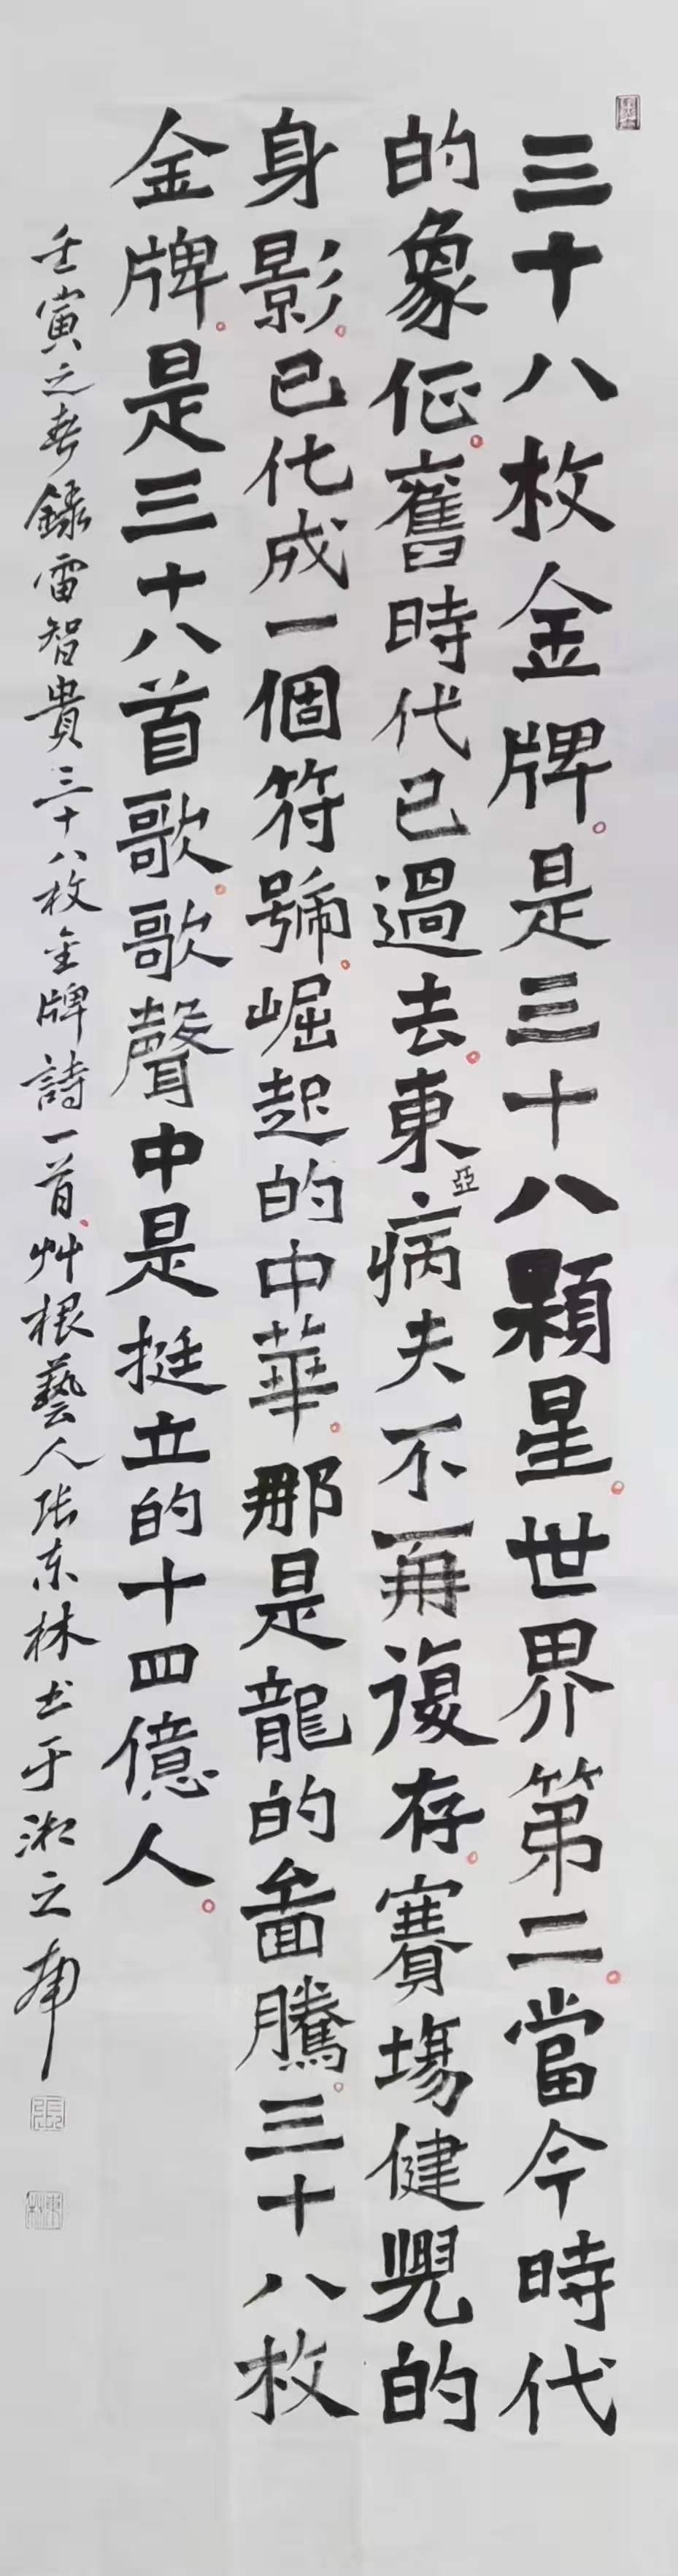 三十八枚金牌。是三十八顆星。世界第二。當今時代
的象征。舊時代已過去。東亞病夫不再復存。賽場健兒的
身影。已化成一個符號。崛起的中華。那是龍的啚騰。三十八枚
金牌。是三十八首歌。歌聲中是挺立的十四億人。
壬寅之春錄雷智貴三十八枚金牌詩一首、艸根藝人張東林书于湘之南